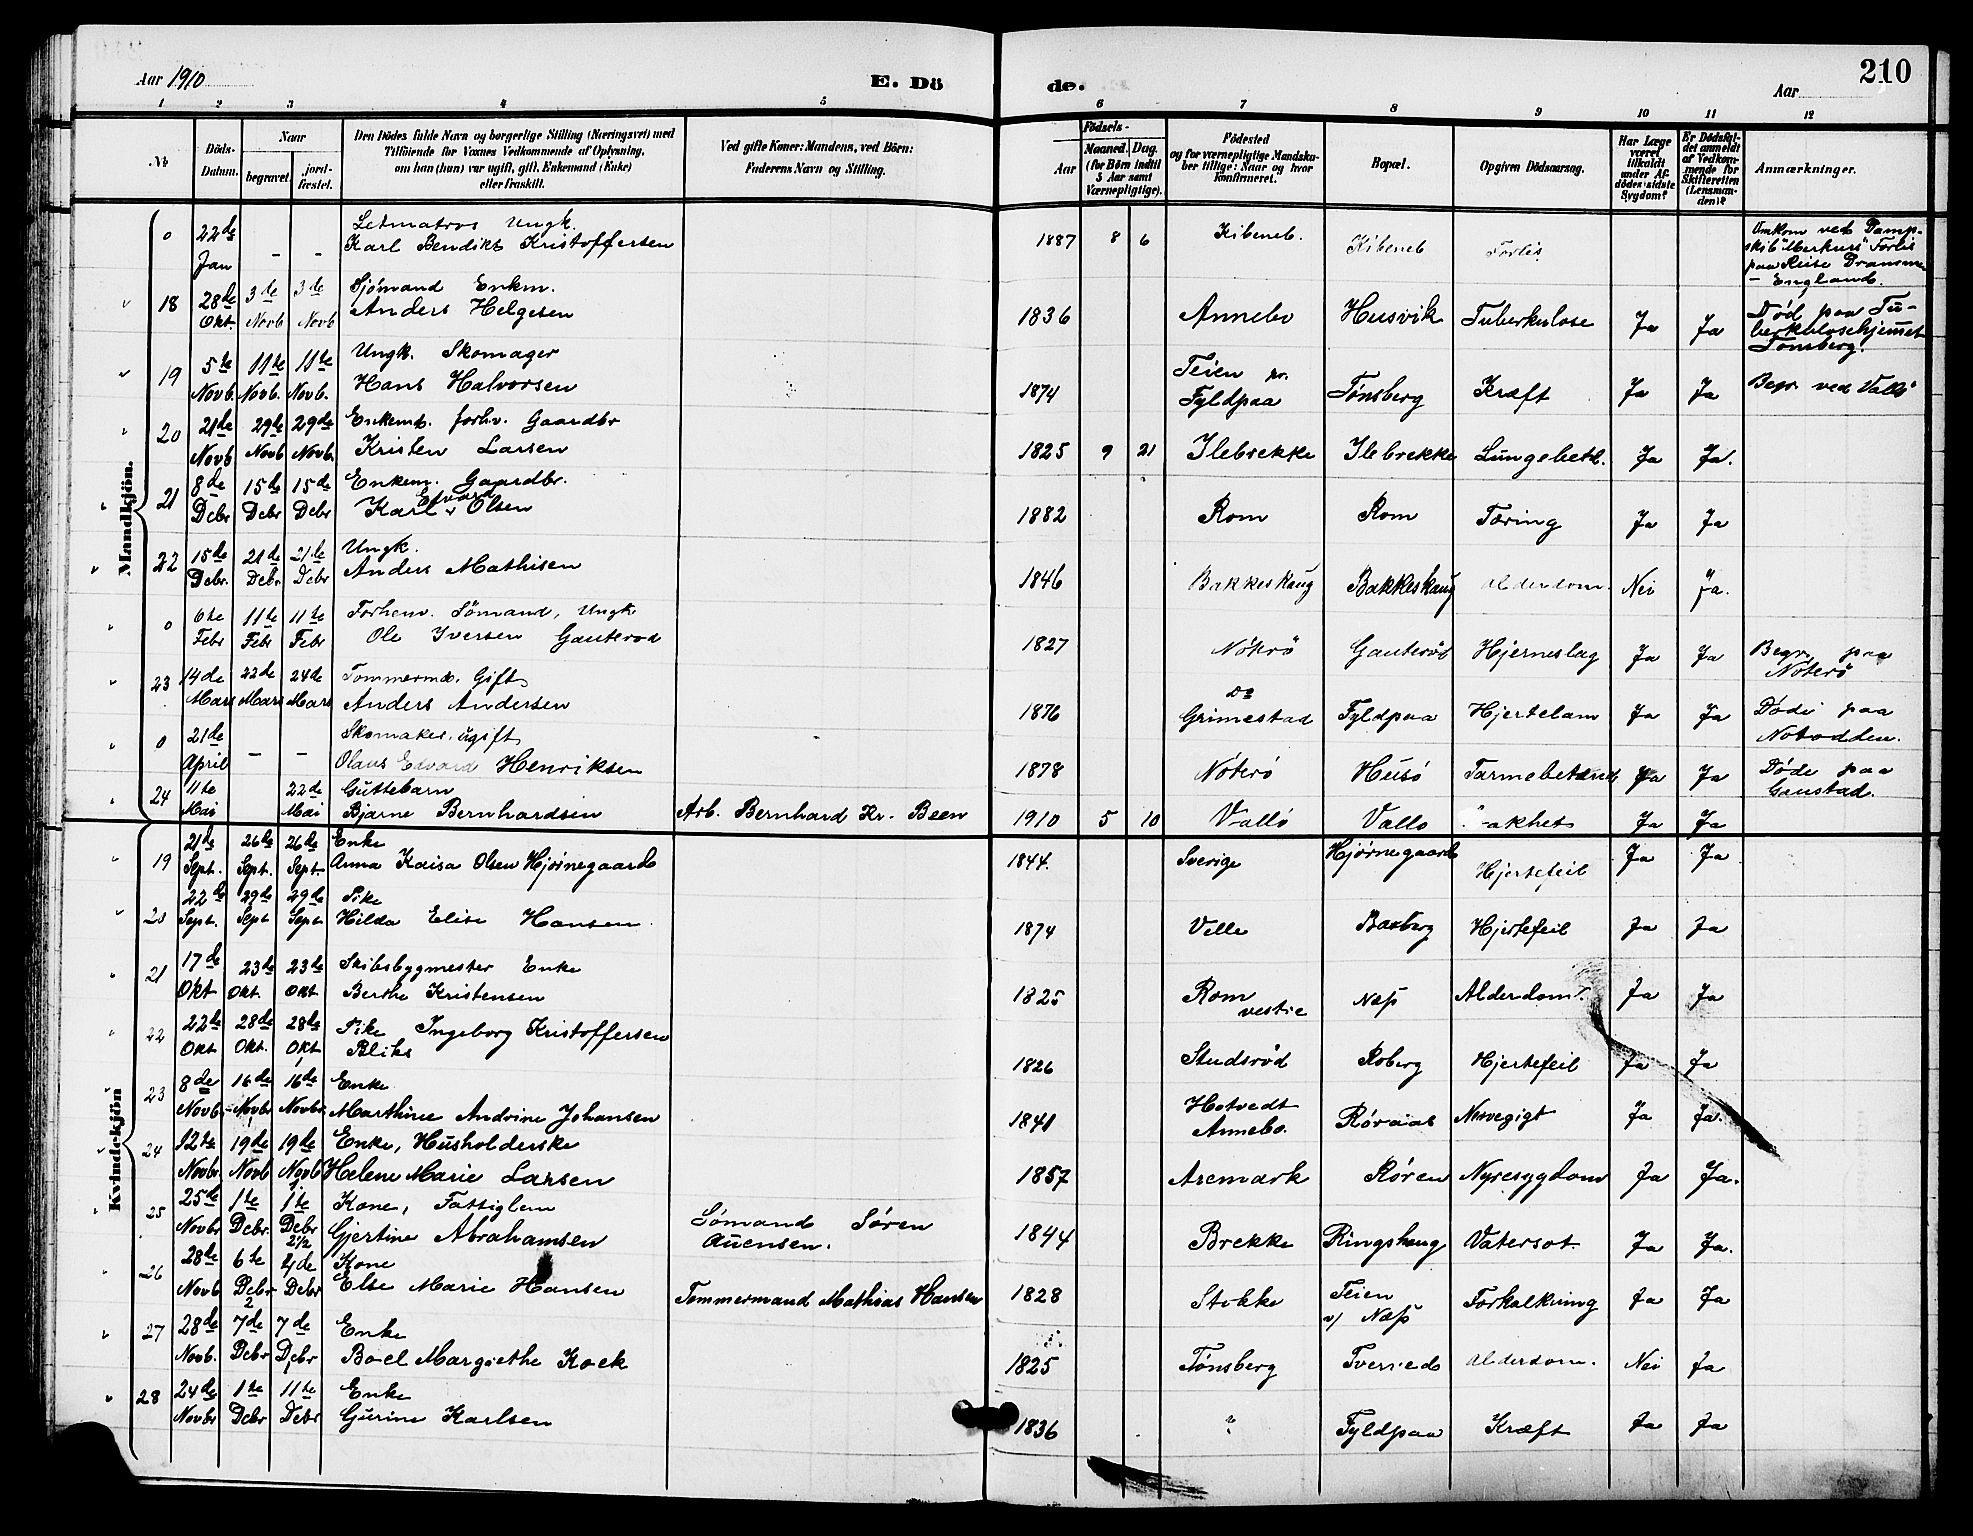 Aar 1910
E. Dö
de.
Aar
210
1 2 3 4 5 6 7 8 9 10 11 12
No
Döds-Datum.
Naar
begravet.
jord-fæstet.
Den Dödes fulde Navn og borgerlige Stilling (Næringsvei) med
Tilföiende for Voxnes Vedkommende af Oplysning,
om han (hun) var ugift, gift, Enkemand (Enke)
eller fraskilt.
Ved gifte Koner: Mandens, ved Börn:
Faderens Navn og Stilling.
Födsels-
Aar
Maaned. Dag.
(for Börn indtil
5 Aar samt
Værnepligtige).
Födested
og for værnepligtige Mandska-
ber tillige: Naar og hvor
konfirmeret.
Bopæl.
Opgiven Dödsaarsag.
Har Læge
været
tilkaldt
under Af-
dödes sidste
Sygdom?
Er Dödsfal-
det anmeldt
af Vedkom-
mende for
Skifteretten
(Lensman-
den)?
Anmærkninger.
Mandkjön.
0 22de Jan – – Letmatros Ungk.
Karl Bendikt Kristoffersen 1887 8 6 Kibeneb. Kibeneb Forlis Omkom ved Damp-
skib "Merkur" Forlis
paa Reise Drammen
– England.
18 28de Okt. 3de Novb 3de Novb Sjømand Enkm.
Anders Helgesen 1836 Annebo Husvik Tuberkulose Ja Ja Død paa Tu-
berkulosehjemmet
Tønsberg.
19 5te Novb. 11te Novb. 11te Novb. Ungk. Skomager
Hans Halvorsen 1874 Teien pr.
Fyldpaa Tønsberg Kræft Ja Ja Begr. ved Vallö
20 21de Novb 29de Novb 29de Novb. Enkemd. forhv. Gaardbr
Kristen Larsen 1825 9 21 Ilebrekke Ilebrekke Lungebet. Ja Ja.
21 8de Debr 15de Debr 15de Debr Enkem. Gaardbr.
Karl Edvard Olsen 1882 Rom Rom Tæring Ja Ja
22 15de Debr. 21de Debr 21de Debr Ungk.
Anders Mathisen 1846 Bakkeskaug Bakkeskaug Alderdom. Nei Ja.
0 6te Febr 11te Febr 11te Febr Forhenv. Sömand, Ungk
Ole Iversen Gauterod 1827 Nötrö Gauteröd Hjerneslag Ja Ja Begr. paa
Noterö
23 14de Mars 22de Mars 24de Mars Tommermd. Gift
Anders Andersen 1876 Do
Grimestad Fyldpaa Hjertelam Ja Ja Döde paa
Notodden.
0 21de April – – Skomaker, ugift
Olaus Edvard Henriksen 1878 Nøterø Husö Tarmebetænd Ja Ja Döde paa
Gaustad.
24 11te Mai 22de Mai Guttebarn
Bjarne Bernhardsen Arb. Bernhard Kr. Been 1910 5 10 Vallö Vallo akhet Ja Ja
Kvindekjön
19 21de Sept. 26de Sept. 26de Sept. Enke
Anna Kaisa Olsen Hjørnegaard 1844. Sverige Hjørnegaard Hjertefeil Ja Ja
20 22de Sept. 29de Sept 29de Sept Pike
Hilda Elise Hansen 1874 Velle Basberg Hjertefeil Ja Ja
21 17de Okt 23de Okt. 23de Okt Skibsbygmester Enke
Berthe Kristensen 1825 Rom
vestre Næs Alderdom. Ja Ja
22 22de Okt 28de Okt. 28de Okt Pike Ingeborg Kristoffersen
Bliks 1826 Studsröd Roberg Hjertefeil Ja Ja
23 8de Novb. 16de Novbr 16de Novbr. Enke
Marthine Andrine Johansen 1841 Hotvedt
Annebo. Røraas Nervegigt Ja Ja.
24 12te Novbr. 19de Novb 19de Novb Enke, Husholderske
Helene Marie Larsen 1857 Aremark Røren Nyresygdom Ja Ja.
25 25de Novbr 1te Debr. 1te Debr Kone, Fattiglem
Gjertine Abrahamsen Sømand Søren
Auensen. 1844 Brekke Ringshaug Vatersot. Ja Ja.
26 28de Novb 6te Debr 2½ 4de Debr Kone
Else Marie Hansen Tommermand Mathias Hansen 1828 Stokke Teien
v/ Næs Forkalkning Ja Ja
27 28de Novb. 2 7de Debr 7de Debr Enke
Boel Margrethe Koek 1825 Tønsberg Tverved Alderdom. Nei Ja
28 24de Novbr 1te Debr 11te Debr Enke
Gurine Karlsen 1836 " Fyldpaa Kræft Ja Ja